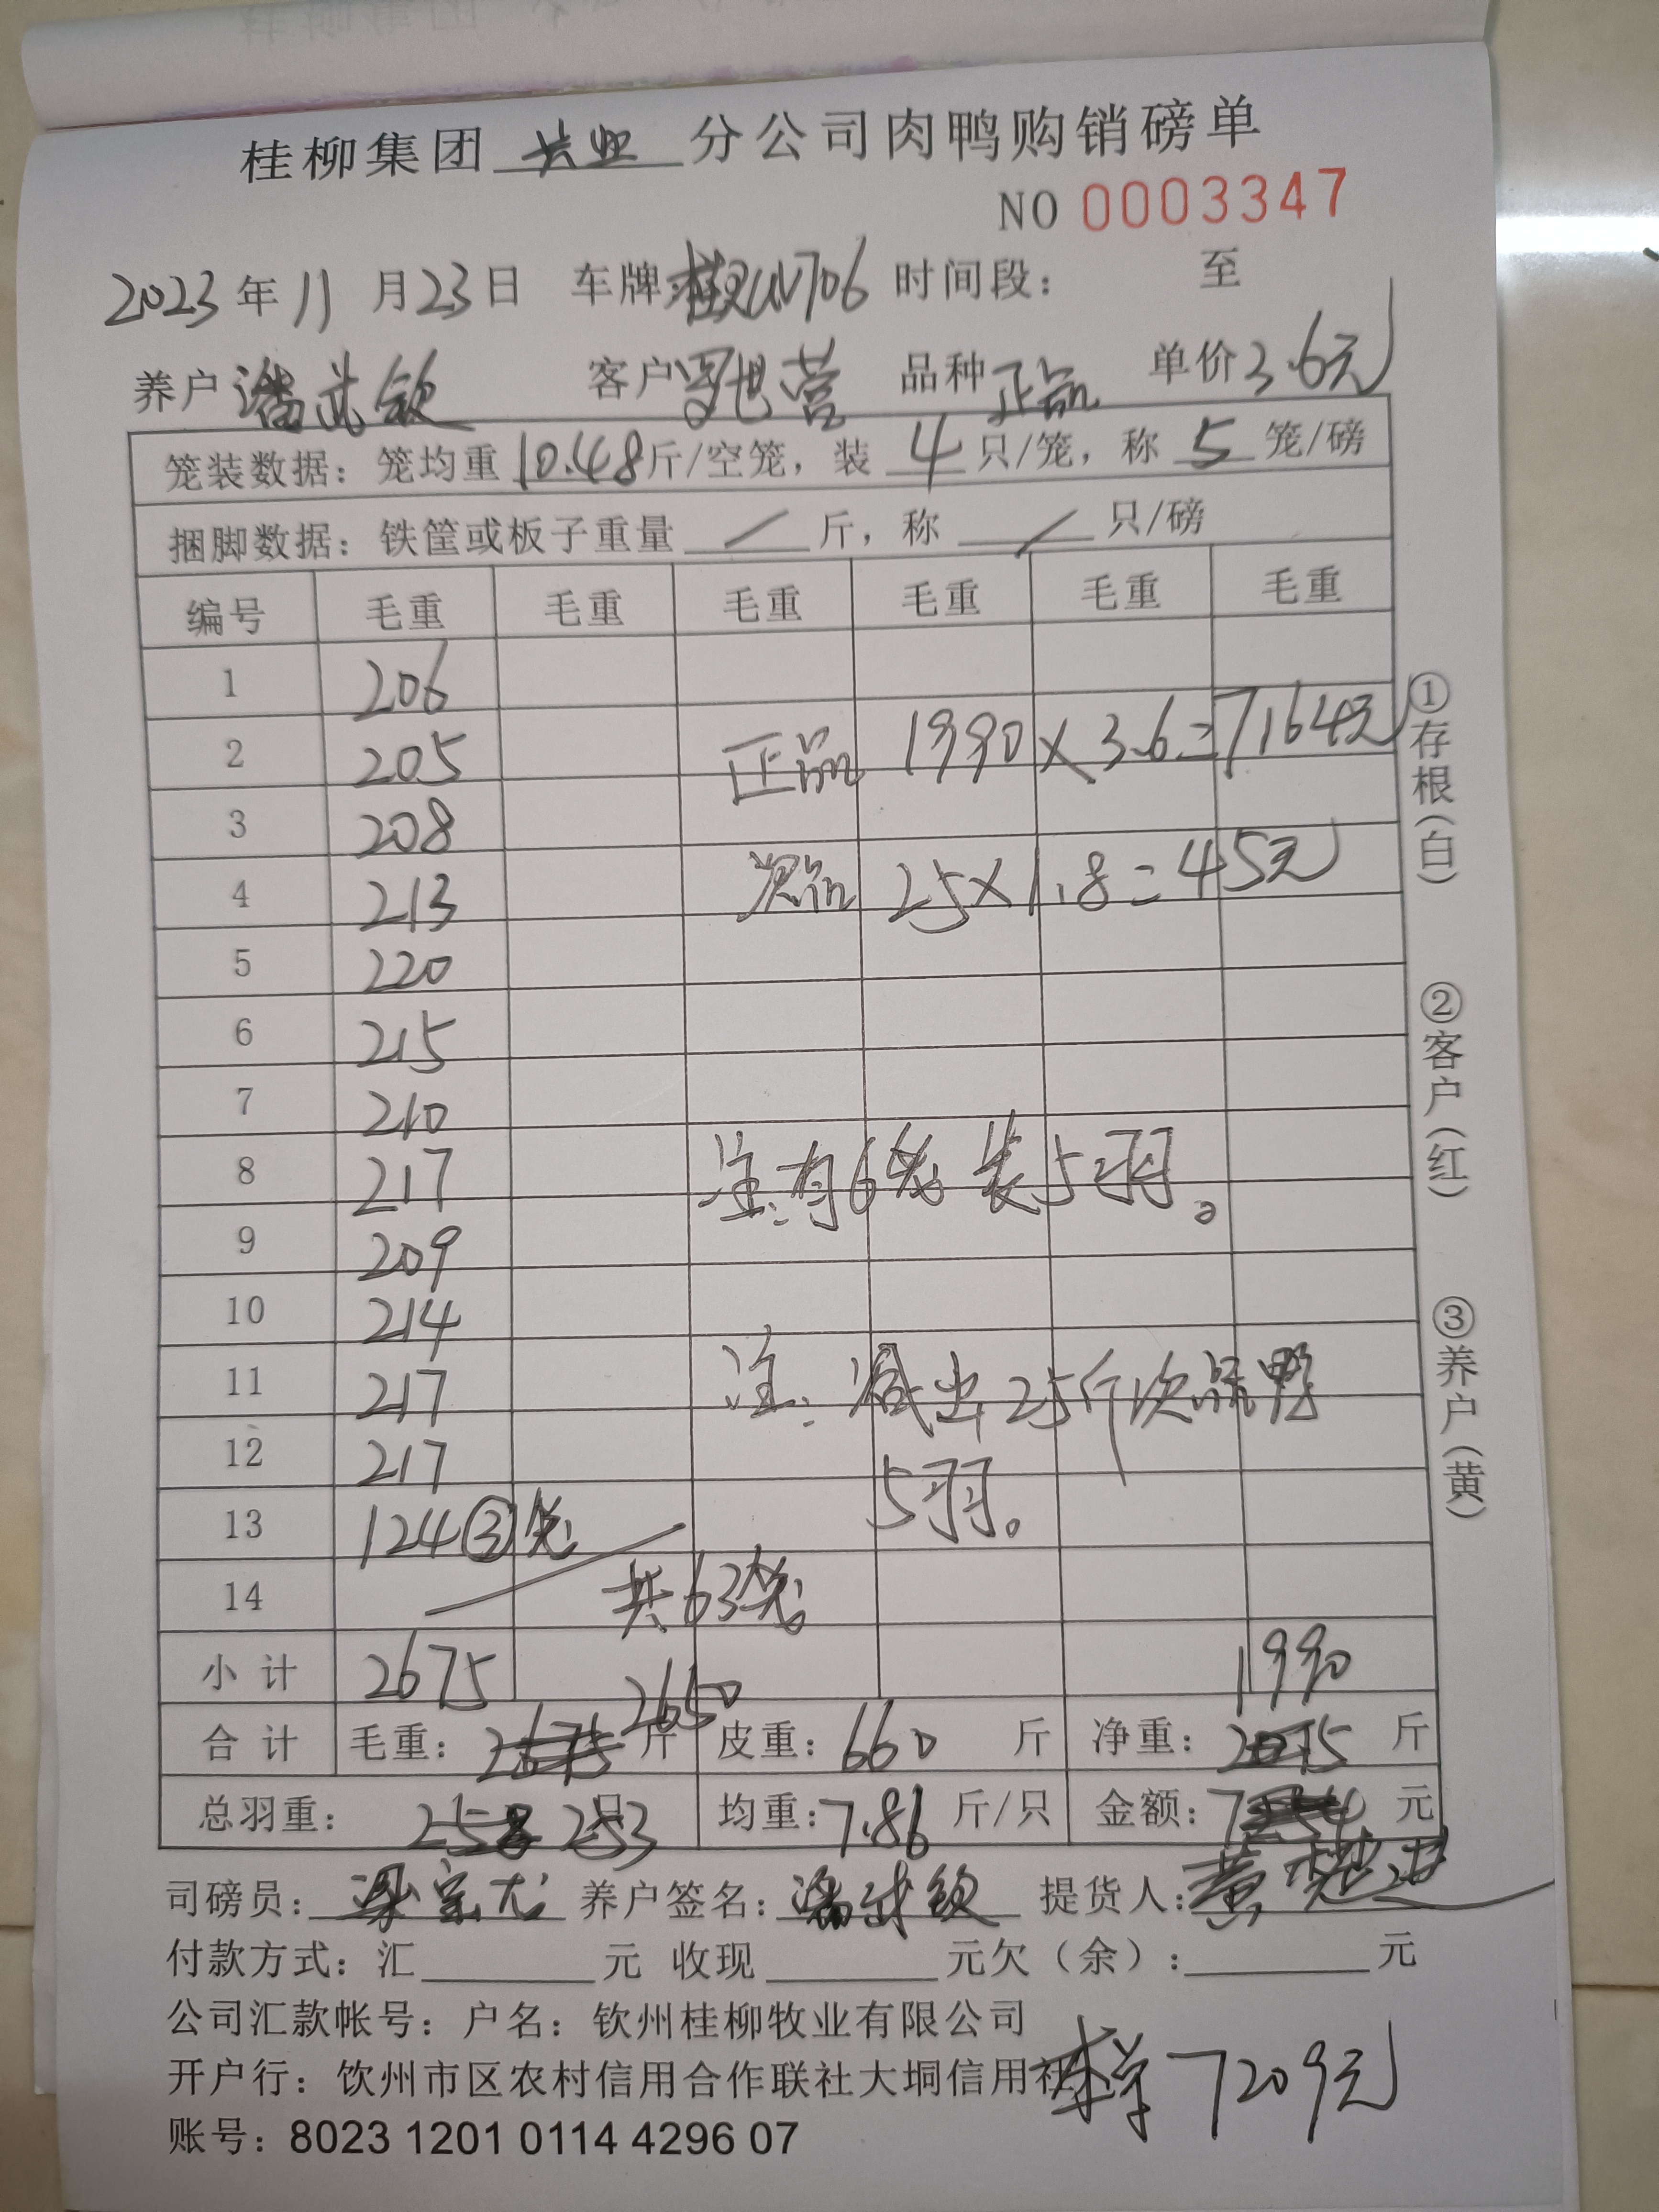 桂柳集团 兴业 分公司肉鸭购销磅单
NO 0003347
2023 年 11 月 23 日 车牌: 时间段: 至
养户 潘武钦 客户 品种 正品 单价 3.6元
笼装数据: 笼均重 10.48 斤/空笼, 装 4 只/笼, 称 5 笼/磅
捆脚数据: 铁筐或板子重量 / 斤, 称 / 只/磅
编号 毛重 毛重 毛重 毛重 毛重 毛重
1 206
2 205 正品 1990×3.6=7164元
3 208
4 213 次品 25×1.8=45元
5 220
6 215
7 210
8 217 注:有6笼装5羽。
9 209
10 214
11 217 注:减出25斤次品鸭
12 217 5羽。
13 124③笼
14 共63笼
小计 2675 1990
合计 毛重: 2675 斤 2650 皮重: 660 斤 净重: 2015 斤
总羽重: 258 253 只 均重: 7.86 斤/只 金额: 元
司磅员: 梁宗尤 养户签名: 潘武钦 提货人:
付款方式: 汇 元 收现 元欠(余): 元
公司汇款帐号: 户名: 钦州桂柳牧业有限公司
开户行: 钦州市区农村信用合作联社大垌信用社
7209元
账号: 8023 1201 0114 4296 07
①存根(白)
②客户(红)
③养户(黄)